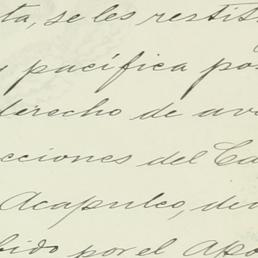 ta, se les restit
y pacífica pos
derecho de
cciones del Ca
Acapulco, de
bido por el Apo